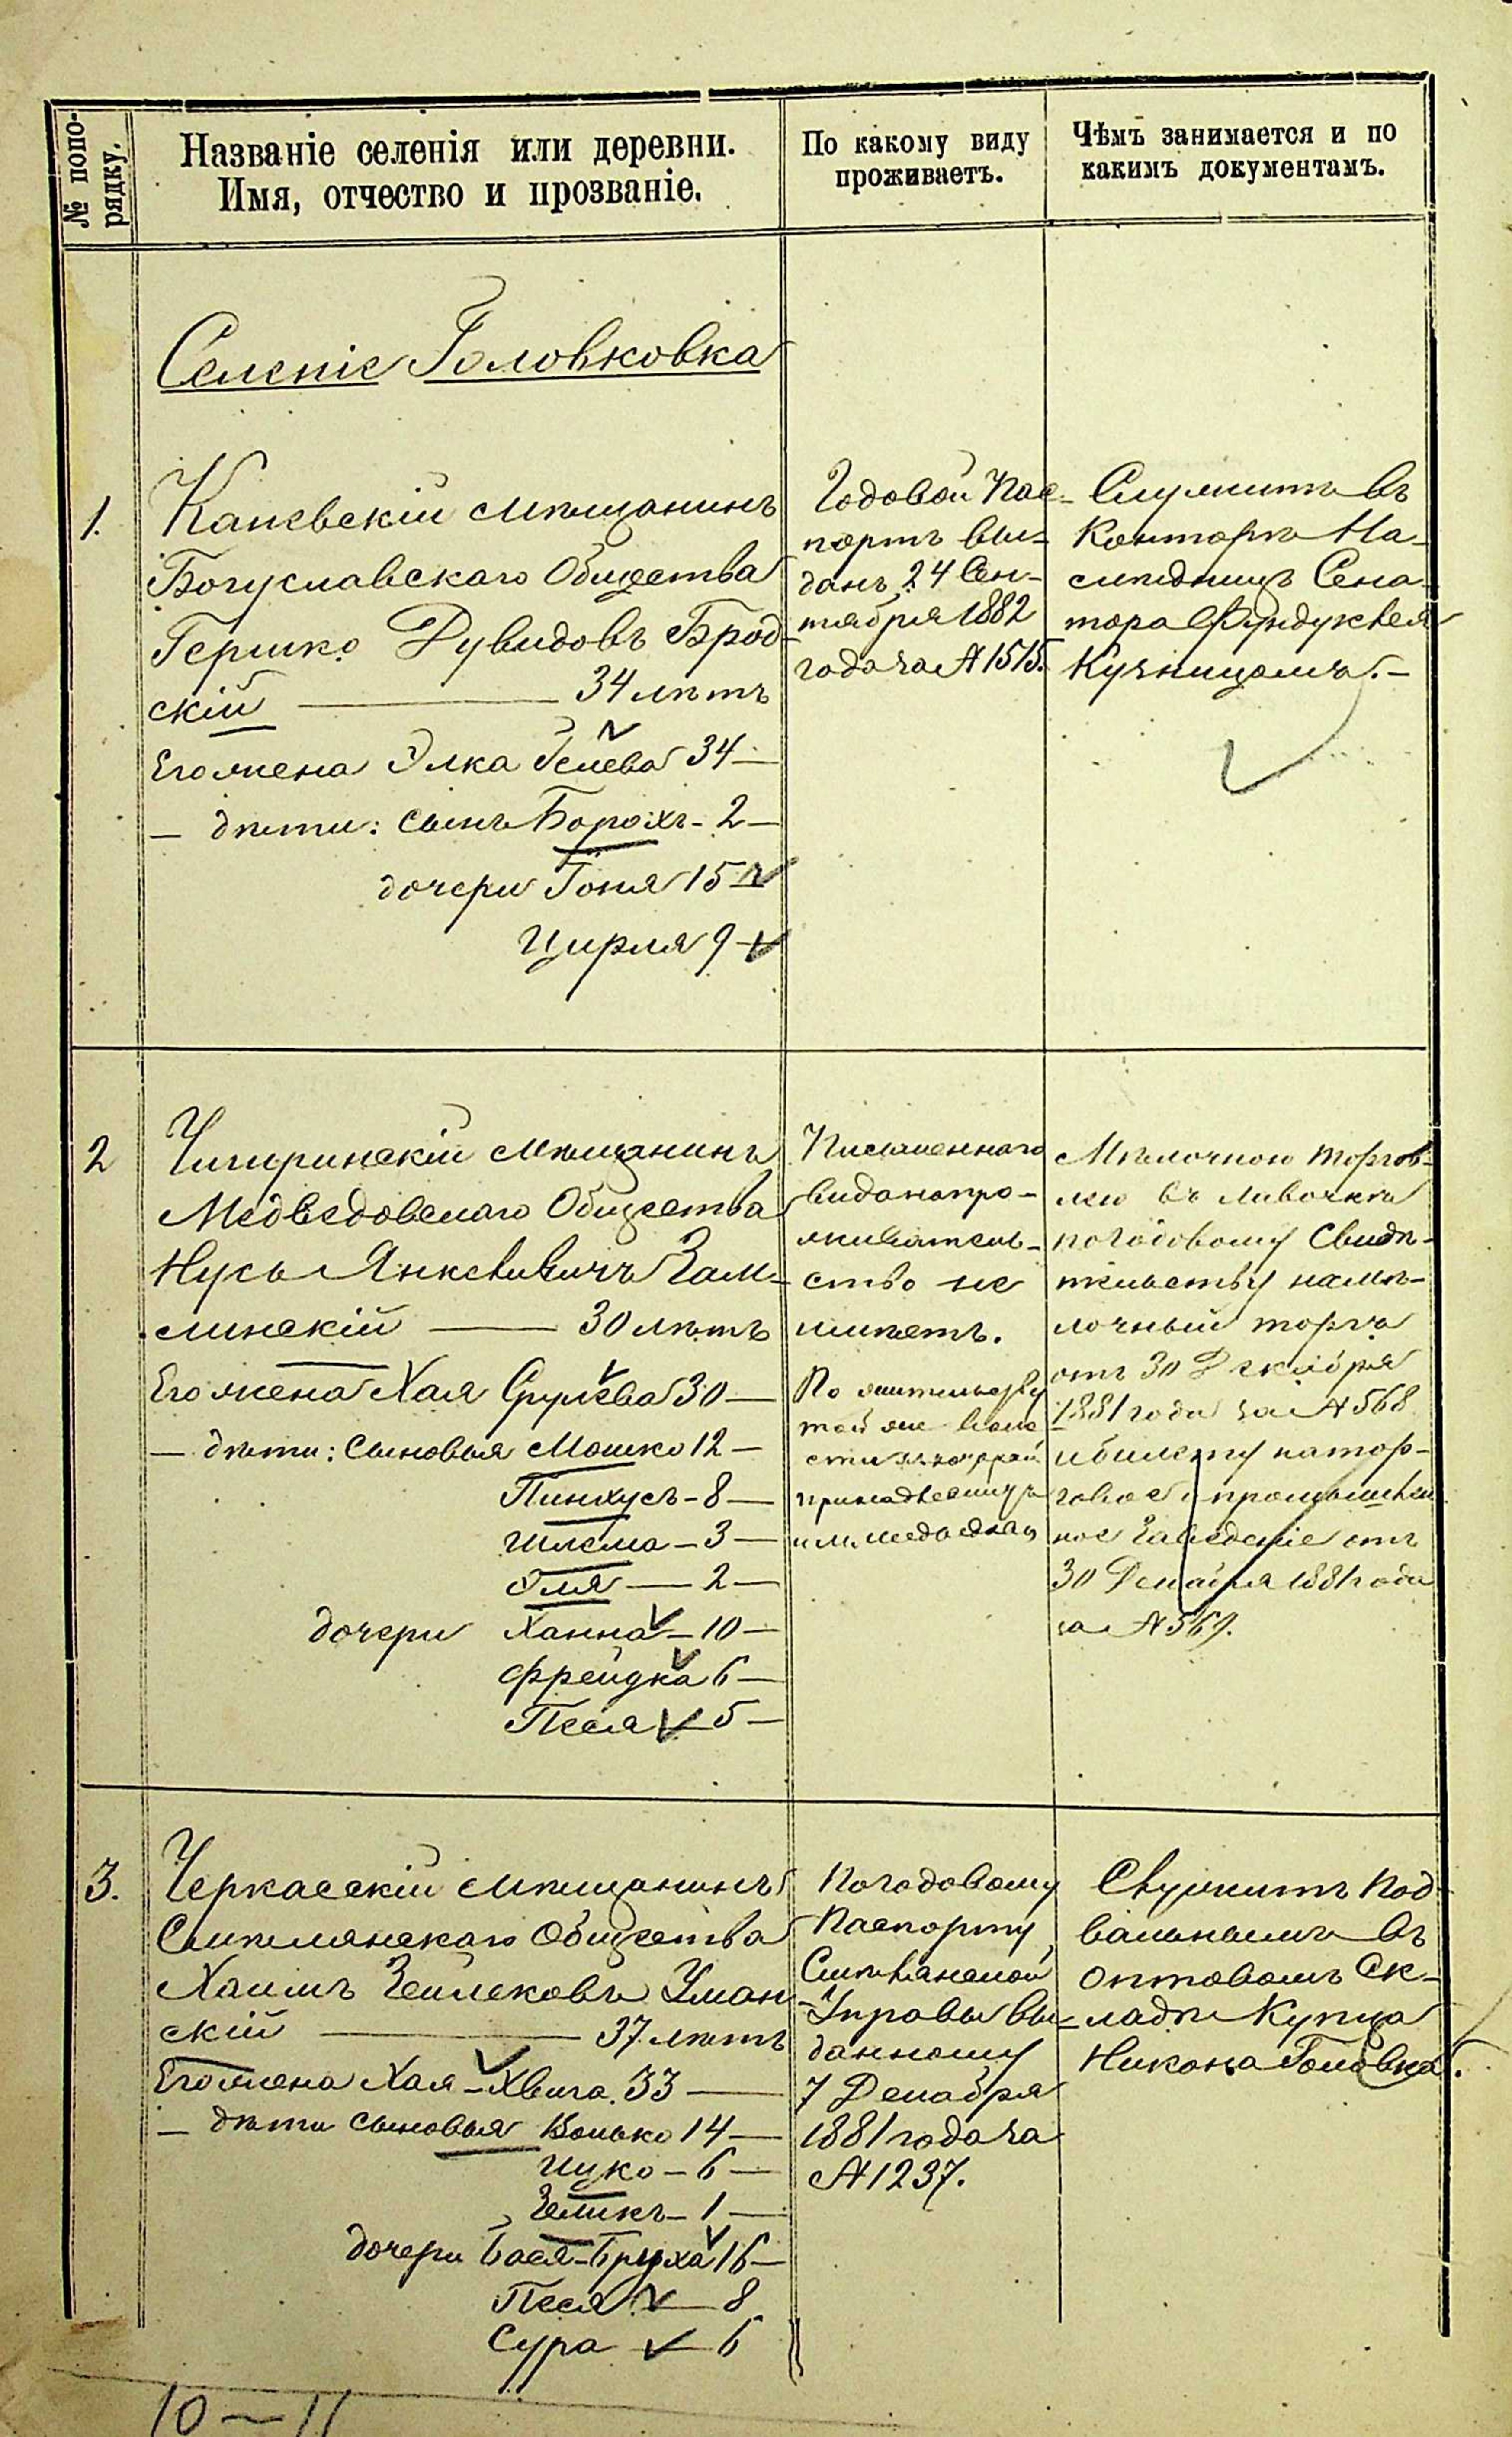 № попо-
рядку.
Названіе селенія или деревни.
Имя, отчество и прозваніе.
По какому виду
проживаетъ.
Чѣмъ занимается и по
какимъ документамъ.
Селеніе Головковка
1.
Каневскій мѣщанинъ
Богуславскаго Общества
Гершко Дувидовъ Брод-
скій — 34 лѣтъ
Его жена Элка 34 —
— дѣти: сынъ Борохъ - 2 —
дочери Гоня 15
Цирля 9
Годовой Пас-
портъ вы-
данъ 24 Сен-
тября 1882
года за № 1515.
Служитъ въ
Конторѣ На-
слѣдницъ Сена-
тора Фундуклея
2
Чигиринскій мѣщанинъ
Медведовскаго Общества
Нусь Янкелевичъ Зам-
слинскій — 30 лѣтъ
Его жена Хая Срулева 30 —
— дѣти: Сыновья Мошко 12 —
Пинхусъ - 8 —
Шлема - 3 —
Эля — 2 —
дочери Ханна - 10 —
Фрейдка 6 —
Песя 5 —
Письменного
вида на про-
живатель-
ство не
имѣетъ.
По жительству
той же воло
сти
Мѣлочною торгов-
лею въ лавочкѣ
по годовому Свидѣ-
тельству на мѣ-
лочный торгъ
отъ 30 Декабря
1881 года за № 568
и билету на тор-
говое и промышлен
ное Заведеніе отъ
30 Декабря 1881 года
за № 569.
3.
Черкасскій мѣщанинъ
Смѣлянскаго Общества
Хаимъ Зейлековъ Уман
скій — 37 лѣтъ
Его жена Хая - Хвига 33 —
— дѣти сыновья Волько 14 —
Ицко - 6 —
Зеликъ - 1 —
дочери Бася - Бруха 16 —
Песя — 8
Сура — 6
По годовому
Паспорту,
Смѣлянской
Управы вы-
данному
7 Декабря
1881 года за
№ 1237.
Служитъ Под
вальнымъ въ
оптовомъ Ск-
ладѣ Купца
Никона Головка.
10 — 11